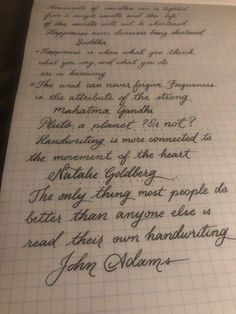 Thousands of candles can be lighted
from a single candle and the life
of the candle will not be shortened
Happiness never decreases being shared
Buddha
• Happiness is when what you think,
what you say, and what you do
are in harmony
• The weak can never forgive Forgiveness
is the attribute of the strong
mahatma Gandhi
Pluto, a planet, ? Or not ?
Handwriting is more connected to
the movement of the heart
Natalie Goldberg
The only thing most people do
better than anyone else is
read their own handwriting
John Adams